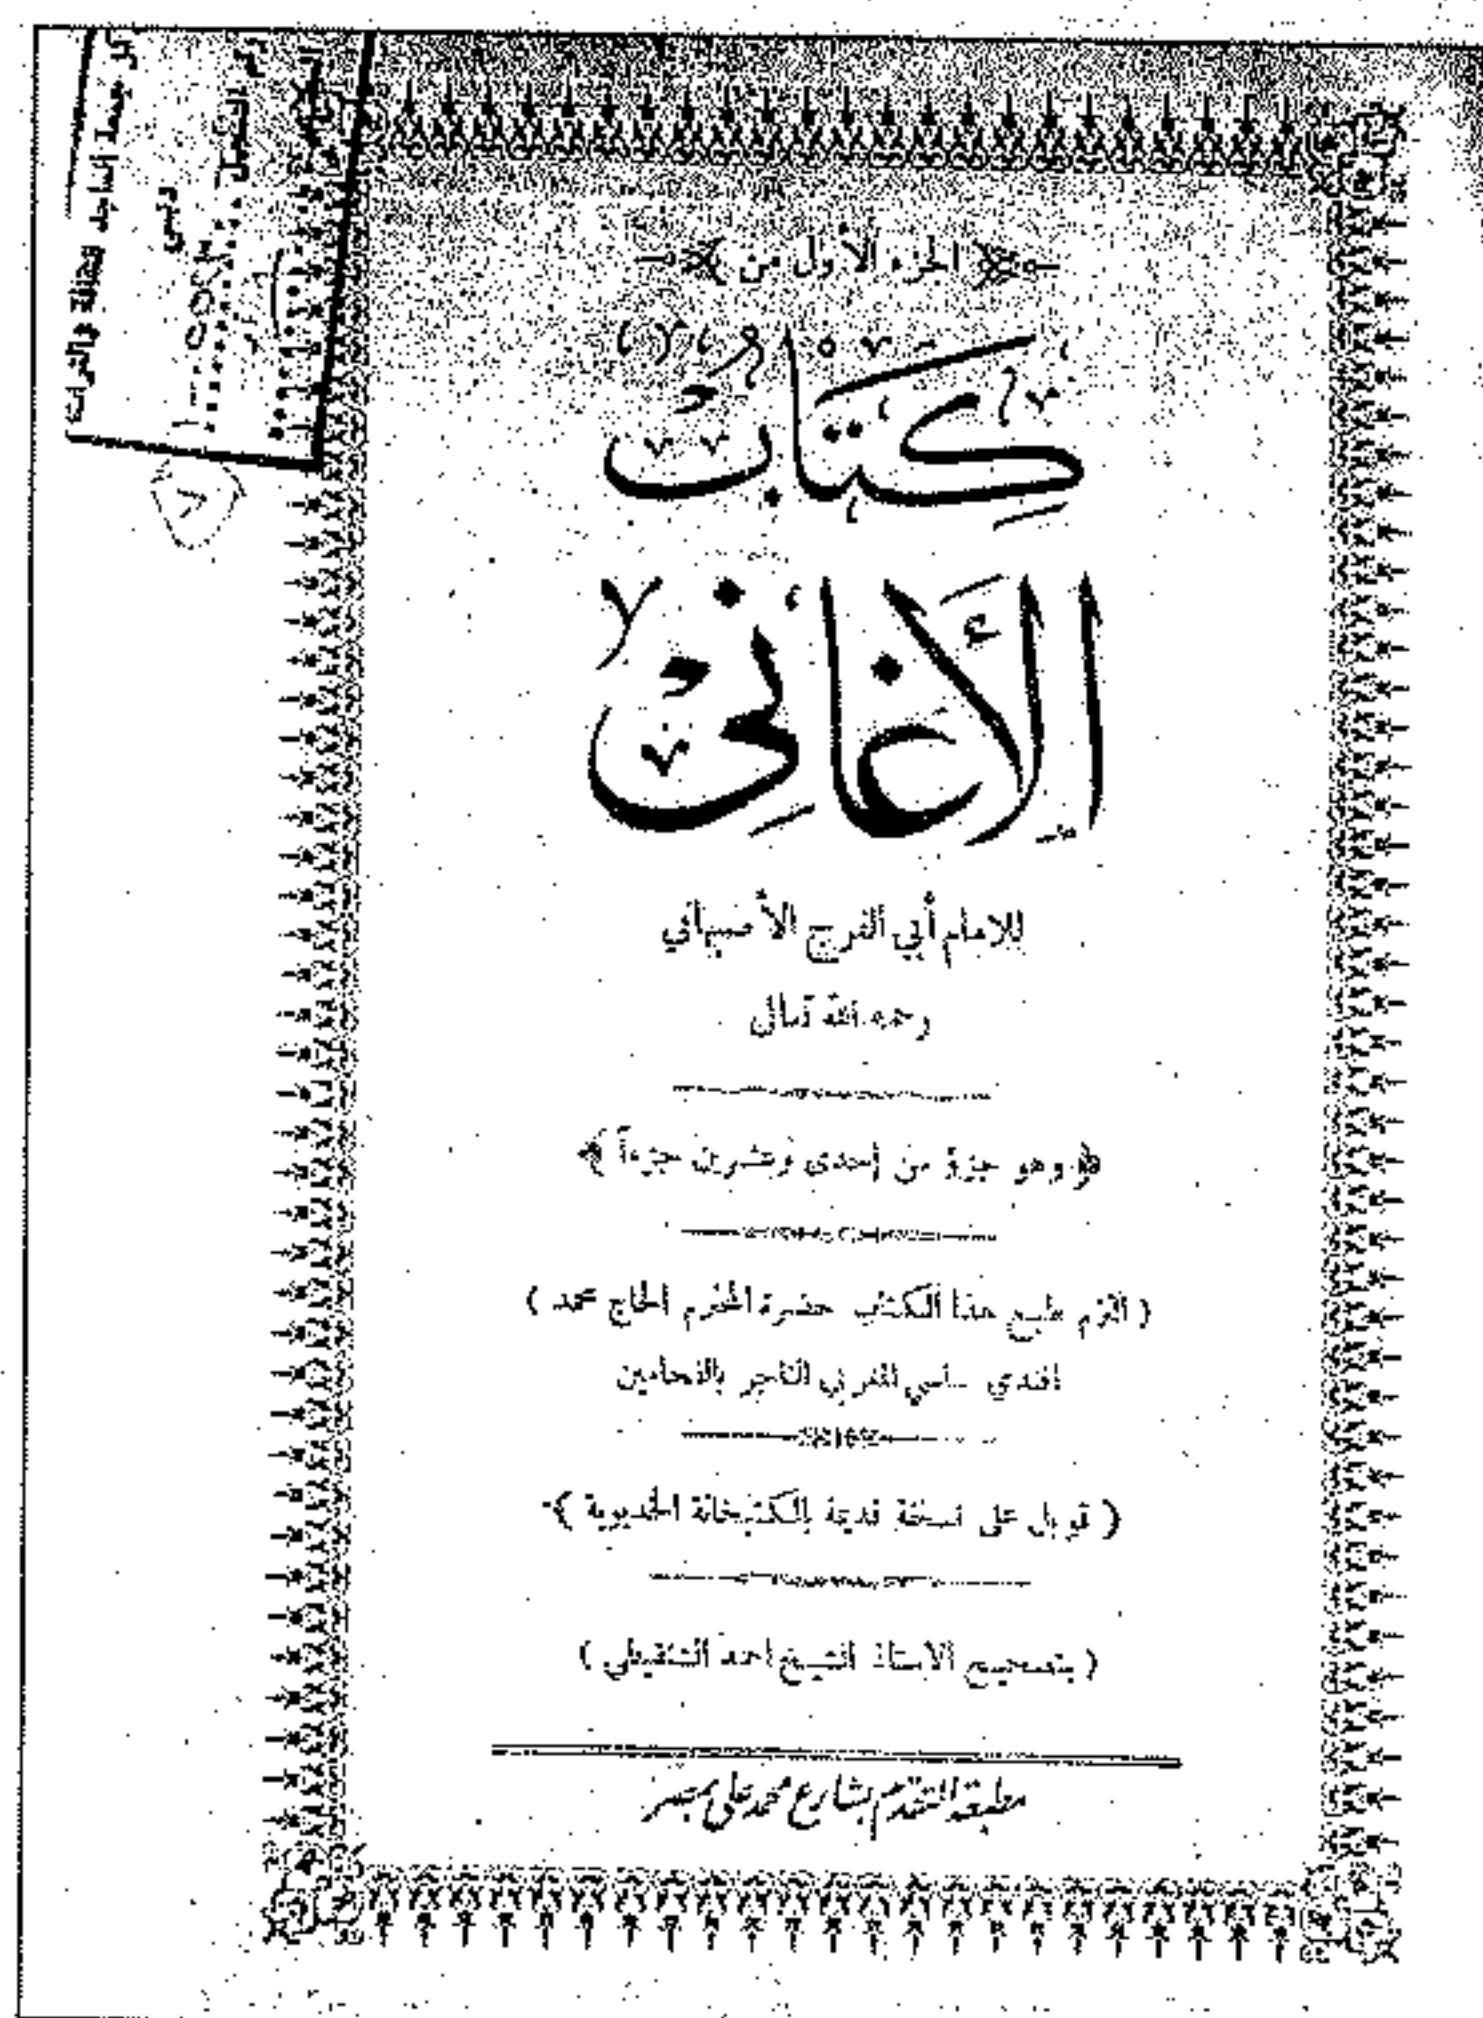 الجزء الأول من
كتاب
الأغاني
للامام أبي الفرج الأصبهاني
رحمه الله تعالى
وهو جزؤ من إحدى وعشرين جزءاً
( التزم طبع هذا الكتاب حضرة المحترم الحاج محمد )
افندي ساسي المغربي التاجر بالفحامين
( قوبل على نسخة قديمة بالكتبخانة الخديوية )
( بتصحيح الاستاذ الشيخ احمد الشنقيطي )
مطبعة التقدم بشارع محمد علي بمصر
مركز جمعة الماجد للثقافة والتراث
دبي